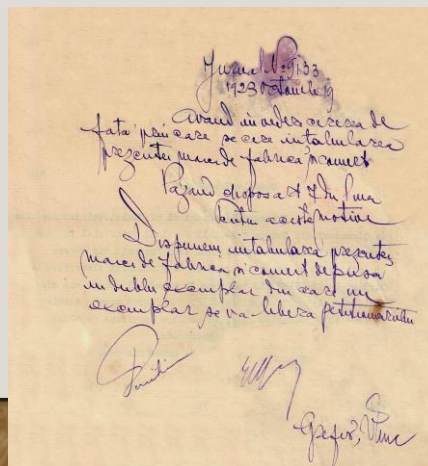 Jurnal No 9133
1923 Octombrie 19
Avand in vedere cererea de
fata prin care se cere intabularea
prezentei marci de fabrica si comert
Vazand dispoz art 7 din
Pentru aceste motive
Dispunem intabularea prezentei
marci de fabrica si comert depusa
in dublu exemplar din care un
exemplar se va libera petitionarului
Grefier,